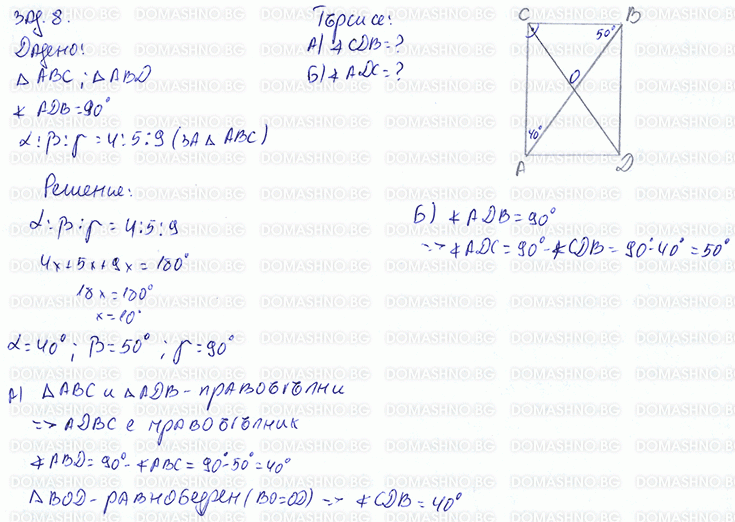 зад. 8.
Дадено:
△ ABC ; △ ABD
∢ ADB = 90°
α : β : γ = 4 : 5 : 9 (за △ ABC)
Търси се:
А) ∢ CDB = ?
Б) ∢ ADC = ?
C
B
50°
O
40°
A
D
Решение:
α : β : γ = 4 : 5 : 9
4x + 5x + 9x = 180°
18x = 180°
x = 10°
α = 40° ; β = 50° ; γ = 90°
А) △ ABC и △ ADB - правоъгълни
=> ADBC е правоъгълник
∢ ABD = 90° - ∢ ABC = 90° - 50° = 40°
△ BOD - равнобедрен (BO = OD) => ∢ CDB = 40°
Б) ∢ ADB = 90°
=> ∢ ADC = 90° - ∢ CDB = 90° - 40° = 50°
DOMASHNO.BG